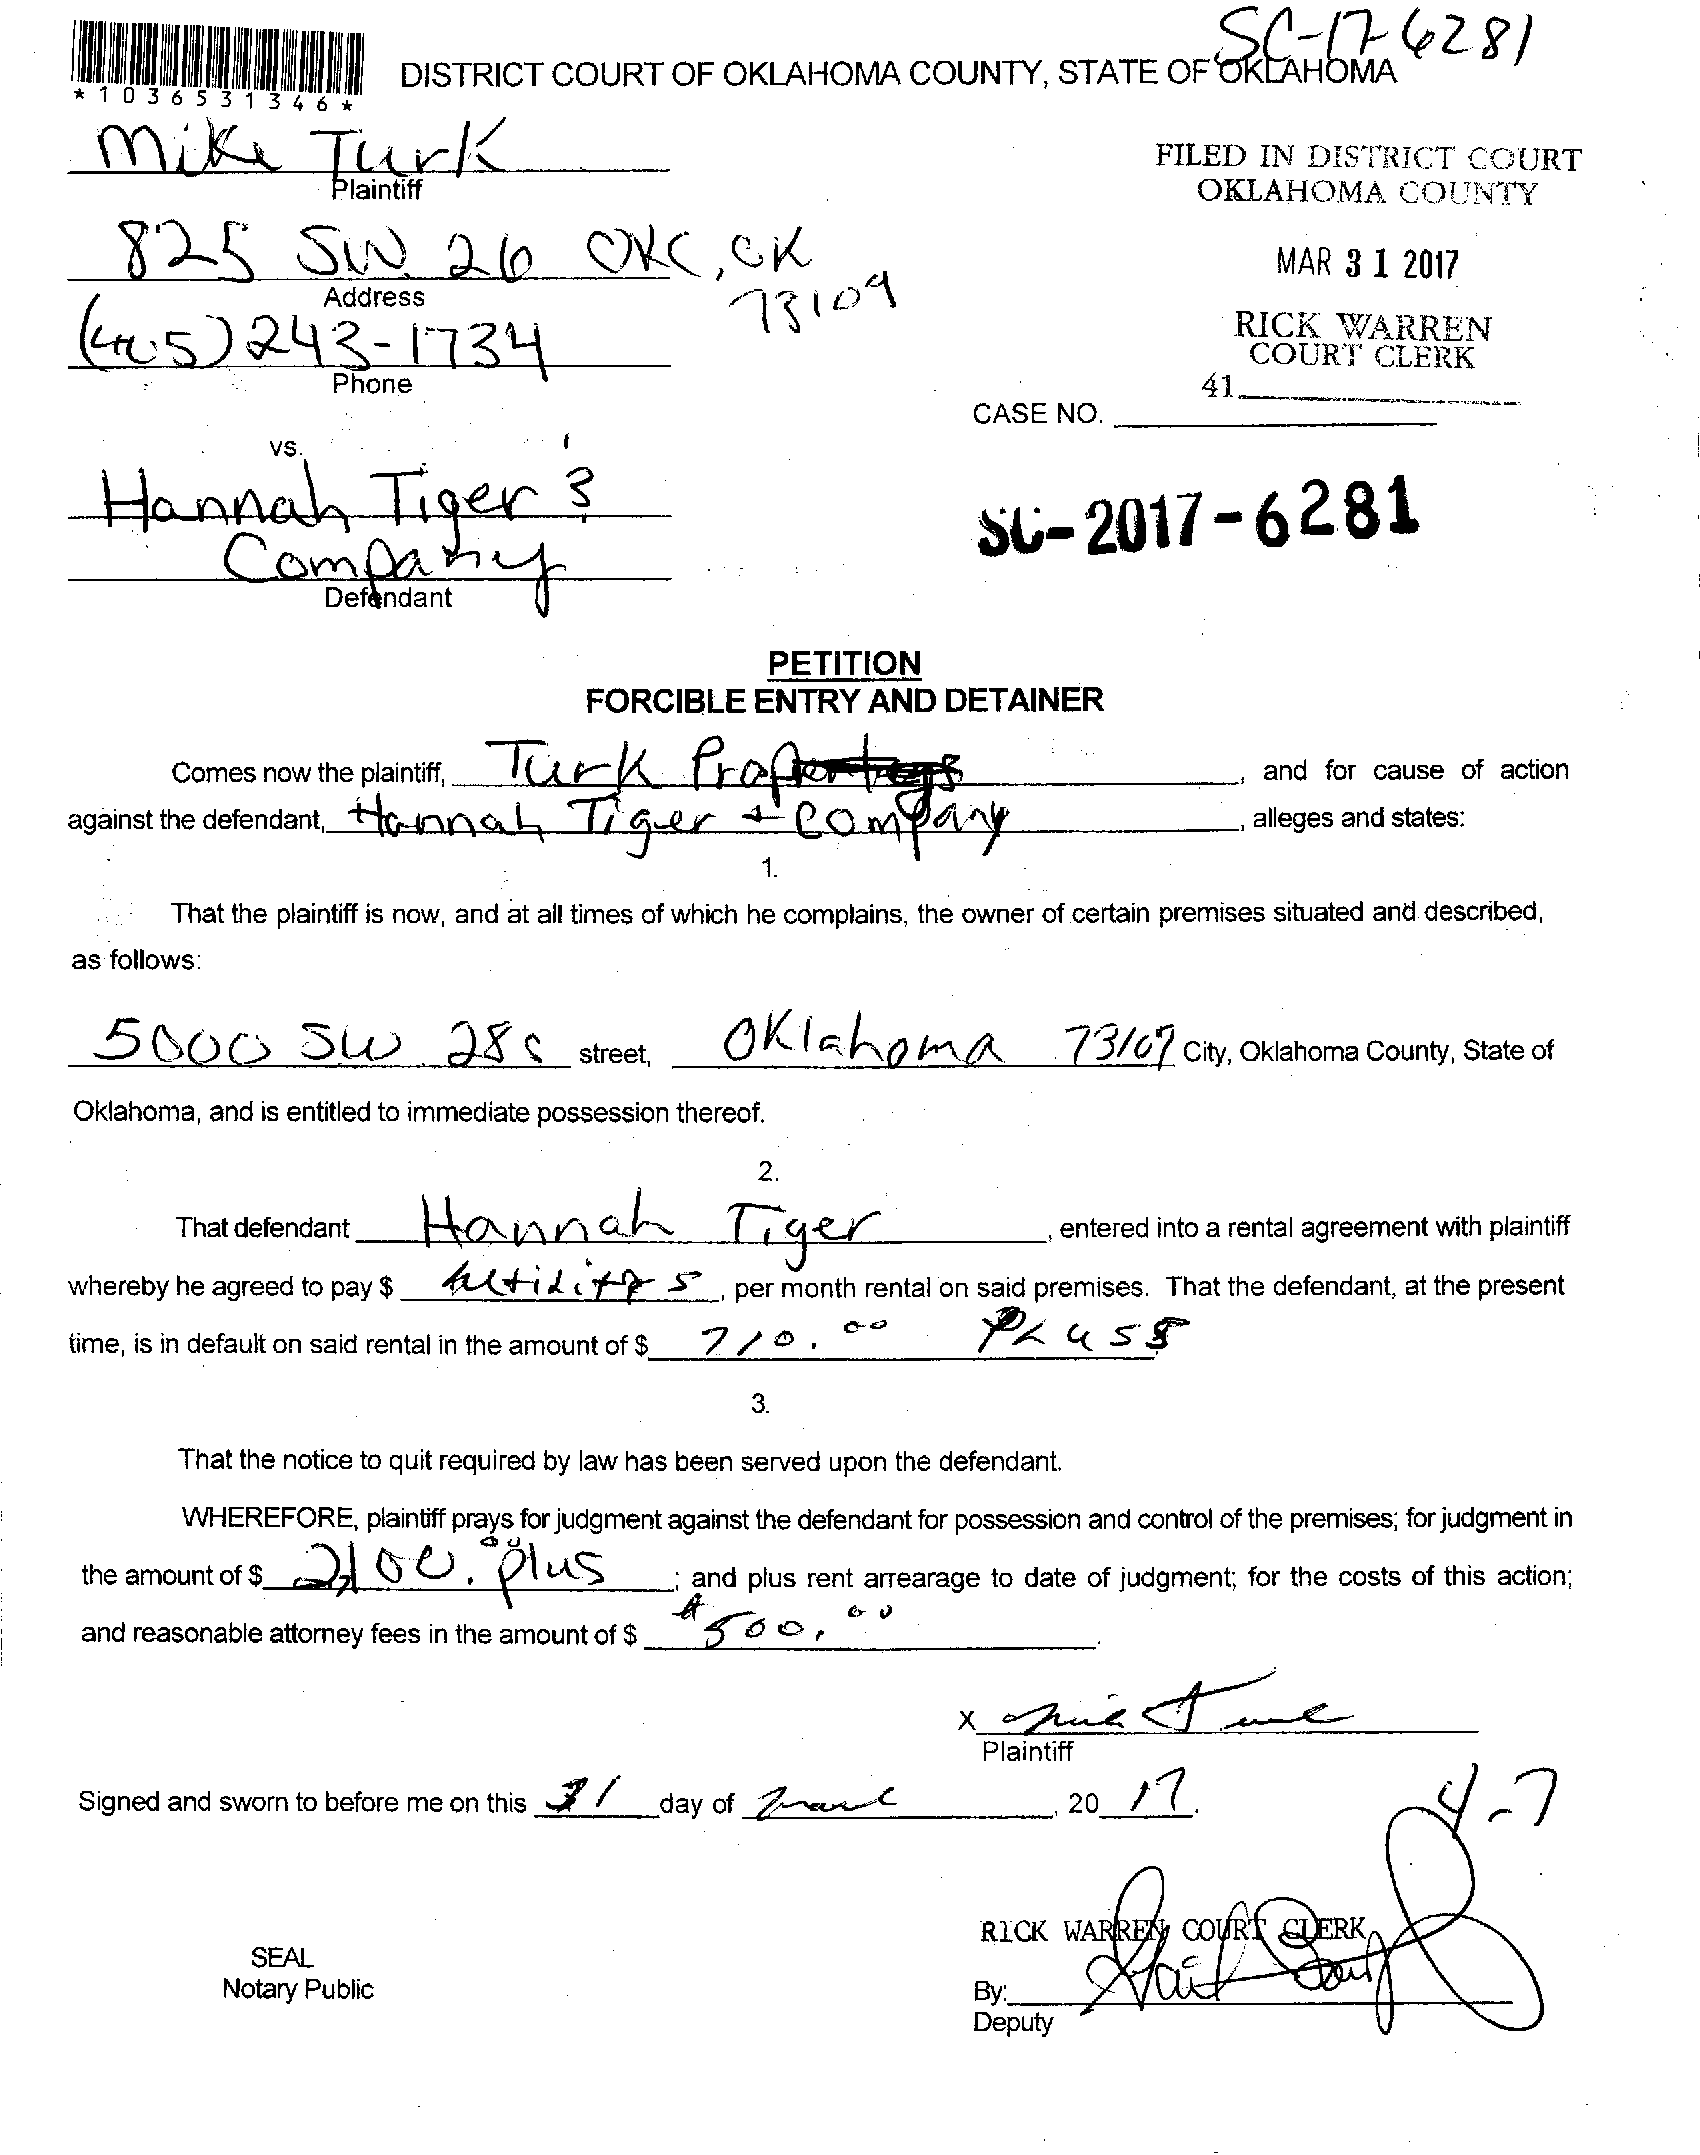 SC-17-6281
*1036531346*
DISTRICT COURT OF OKLAHOMA COUNTY, STATE OF OKLAHOMA
Mike Turk
Plaintiff
FILED IN DISTRICT COURT
OKLAHOMA COUNTY
825 SW 26 OKC, OK
73109
Address
MAR 31 2017
(405) 243-1734
Phone
RICK WARREN
COURT CLERK
41
CASE NO.
vs.
Hannah Tiger &
Company
Defendant
SC-2017-6281
PETITION
FORCIBLE ENTRY AND DETAINER
Comes now the plaintiff, Turk , and for cause of action
against the defendant, Hannah Tiger + Company, alleges and states:
1.
That the plaintiff is now, and at all times of which he complains, the owner of certain premises situated and described,
as follows:
5000 SW street, Oklahoma 73107 City, Oklahoma County, State of
Oklahoma, and is entitled to immediate possession thereof.
2.
That defendant Hannah Tiger, entered into a rental agreement with plaintiff
whereby he agreed to pay $ , per month rental on said premises. That the defendant, at the present
time, is in default on said rental in the amount of $ 710.00 Pluss
3.
That the notice to quit required by law has been served upon the defendant.
WHEREFORE, plaintiff prays for judgment against the defendant for possession and control of the premises; for judgment in
the amount of $ 2,100.00 plus; and plus rent arrearage to date of judgment; for the costs of this action;
and reasonable attorney fees in the amount of $ $500.00.
X Mike Turk
Plaintiff
Signed and sworn to before me on this 31 day of , 2017.
4-7
RICK WARREN COURT CLERK
SEAL
Notary Public
By:
Deputy